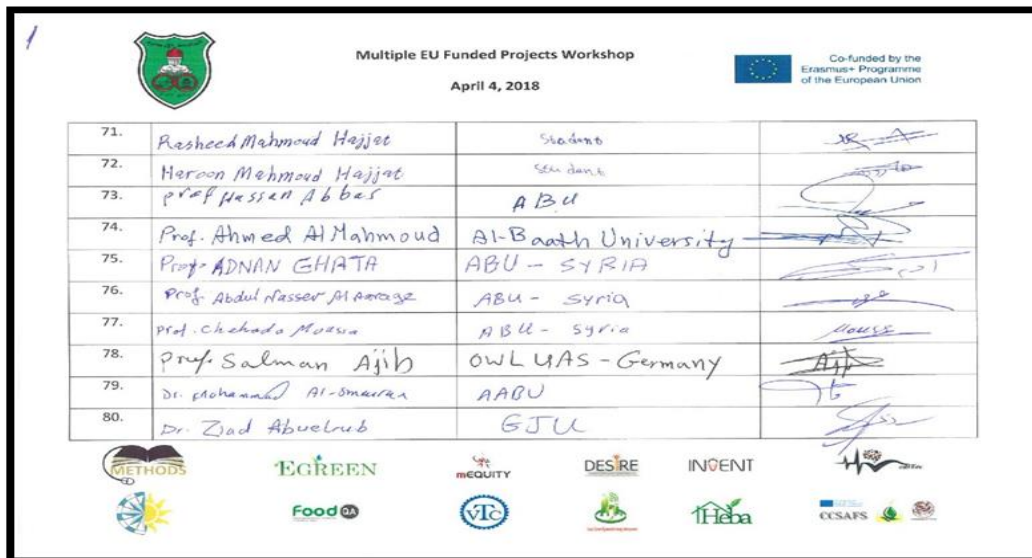 1
Multiple EU Funded Projects Workshop
April 4, 2018
Co-funded by the
Erasmus+ Programme
of the European Union
71. Rasheed Mahmoud Hajjat Student
72. Haroon Mahmoud Hajjat Student
73. Prof Hassan Abbas ABU
74. Prof. Ahmed Al Mahmoud Al-Baath University
75. Prof. ADNAN GHATA ABU - SYRIA
76. Prof. Abdul Nasser Al ABU - Syria
77. Prof. Chehada Moussa ABU - Syria
78. Prof. Salman Ajib OWL UAS - Germany
79. Dr. Mohammad AABU
80. Dr. Ziad Abuelrub GJU
METHODS EGREEN mEQUITY DESIRE INVENT
Food QA VTC Heba CCSAFS